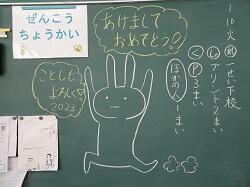 ぜんこう
ちょうかい
あけまして
おめでとう!
ことしも
よろしく
2023
1 10 火 一せい下校
プリント2まい
P3まい
ほかの人1まい